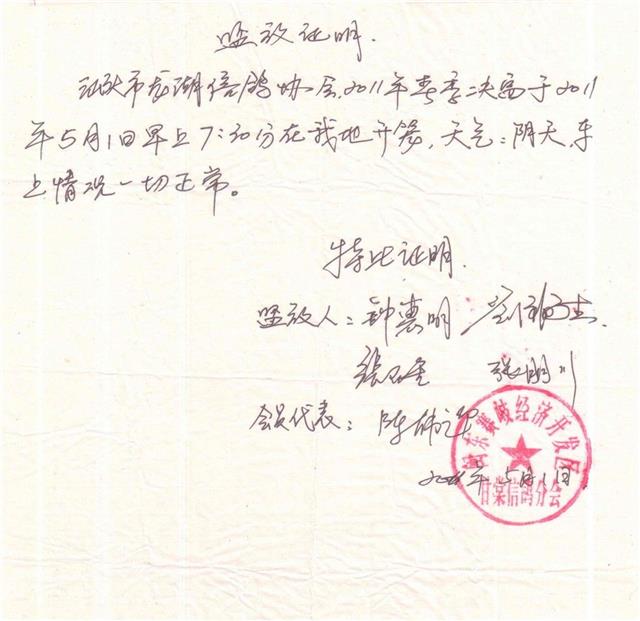 监放证明.
汕头市龙湖信鸽协会2011年春季决赛于2011
年5月1日早上7:30分在我地开笼,天气:阴天,车
上情况一切正常。
特此证明.
监放人:钟惠明
张明川
会员代表:陈伟
2011年5月1日
闽东赛岐经济开发区
甘棠信鸽分会